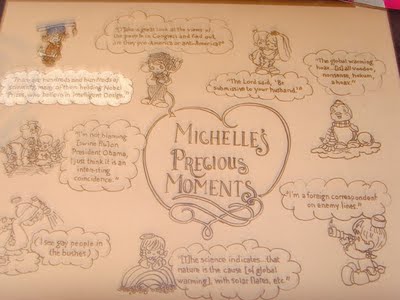 "I take a great look at the views of
the people in Congress and find out,
are they pro-America or anti-America?"
There are hundreds and hundreds of
scientists, many of them holding Nobel
Prizes, who believe in Intelligent Design.
The Lord said, "Be
submissive to your husband."
"The global warming
hoax. It's all voodoo,
nonsense, hokum,
a hoax."
"I'm not blaming
Swine Flu on
President Obama,
I just think it is an
interesting
coincidence."
MICHELLE'S
PRECIOUS
MOMENTS
"I'm a foreign correspondent
on enemy lines."
I see gay people in
the bushes!
"[T]he science indicates... that
nature is the cause [of global
warming], with solar flares, etc."